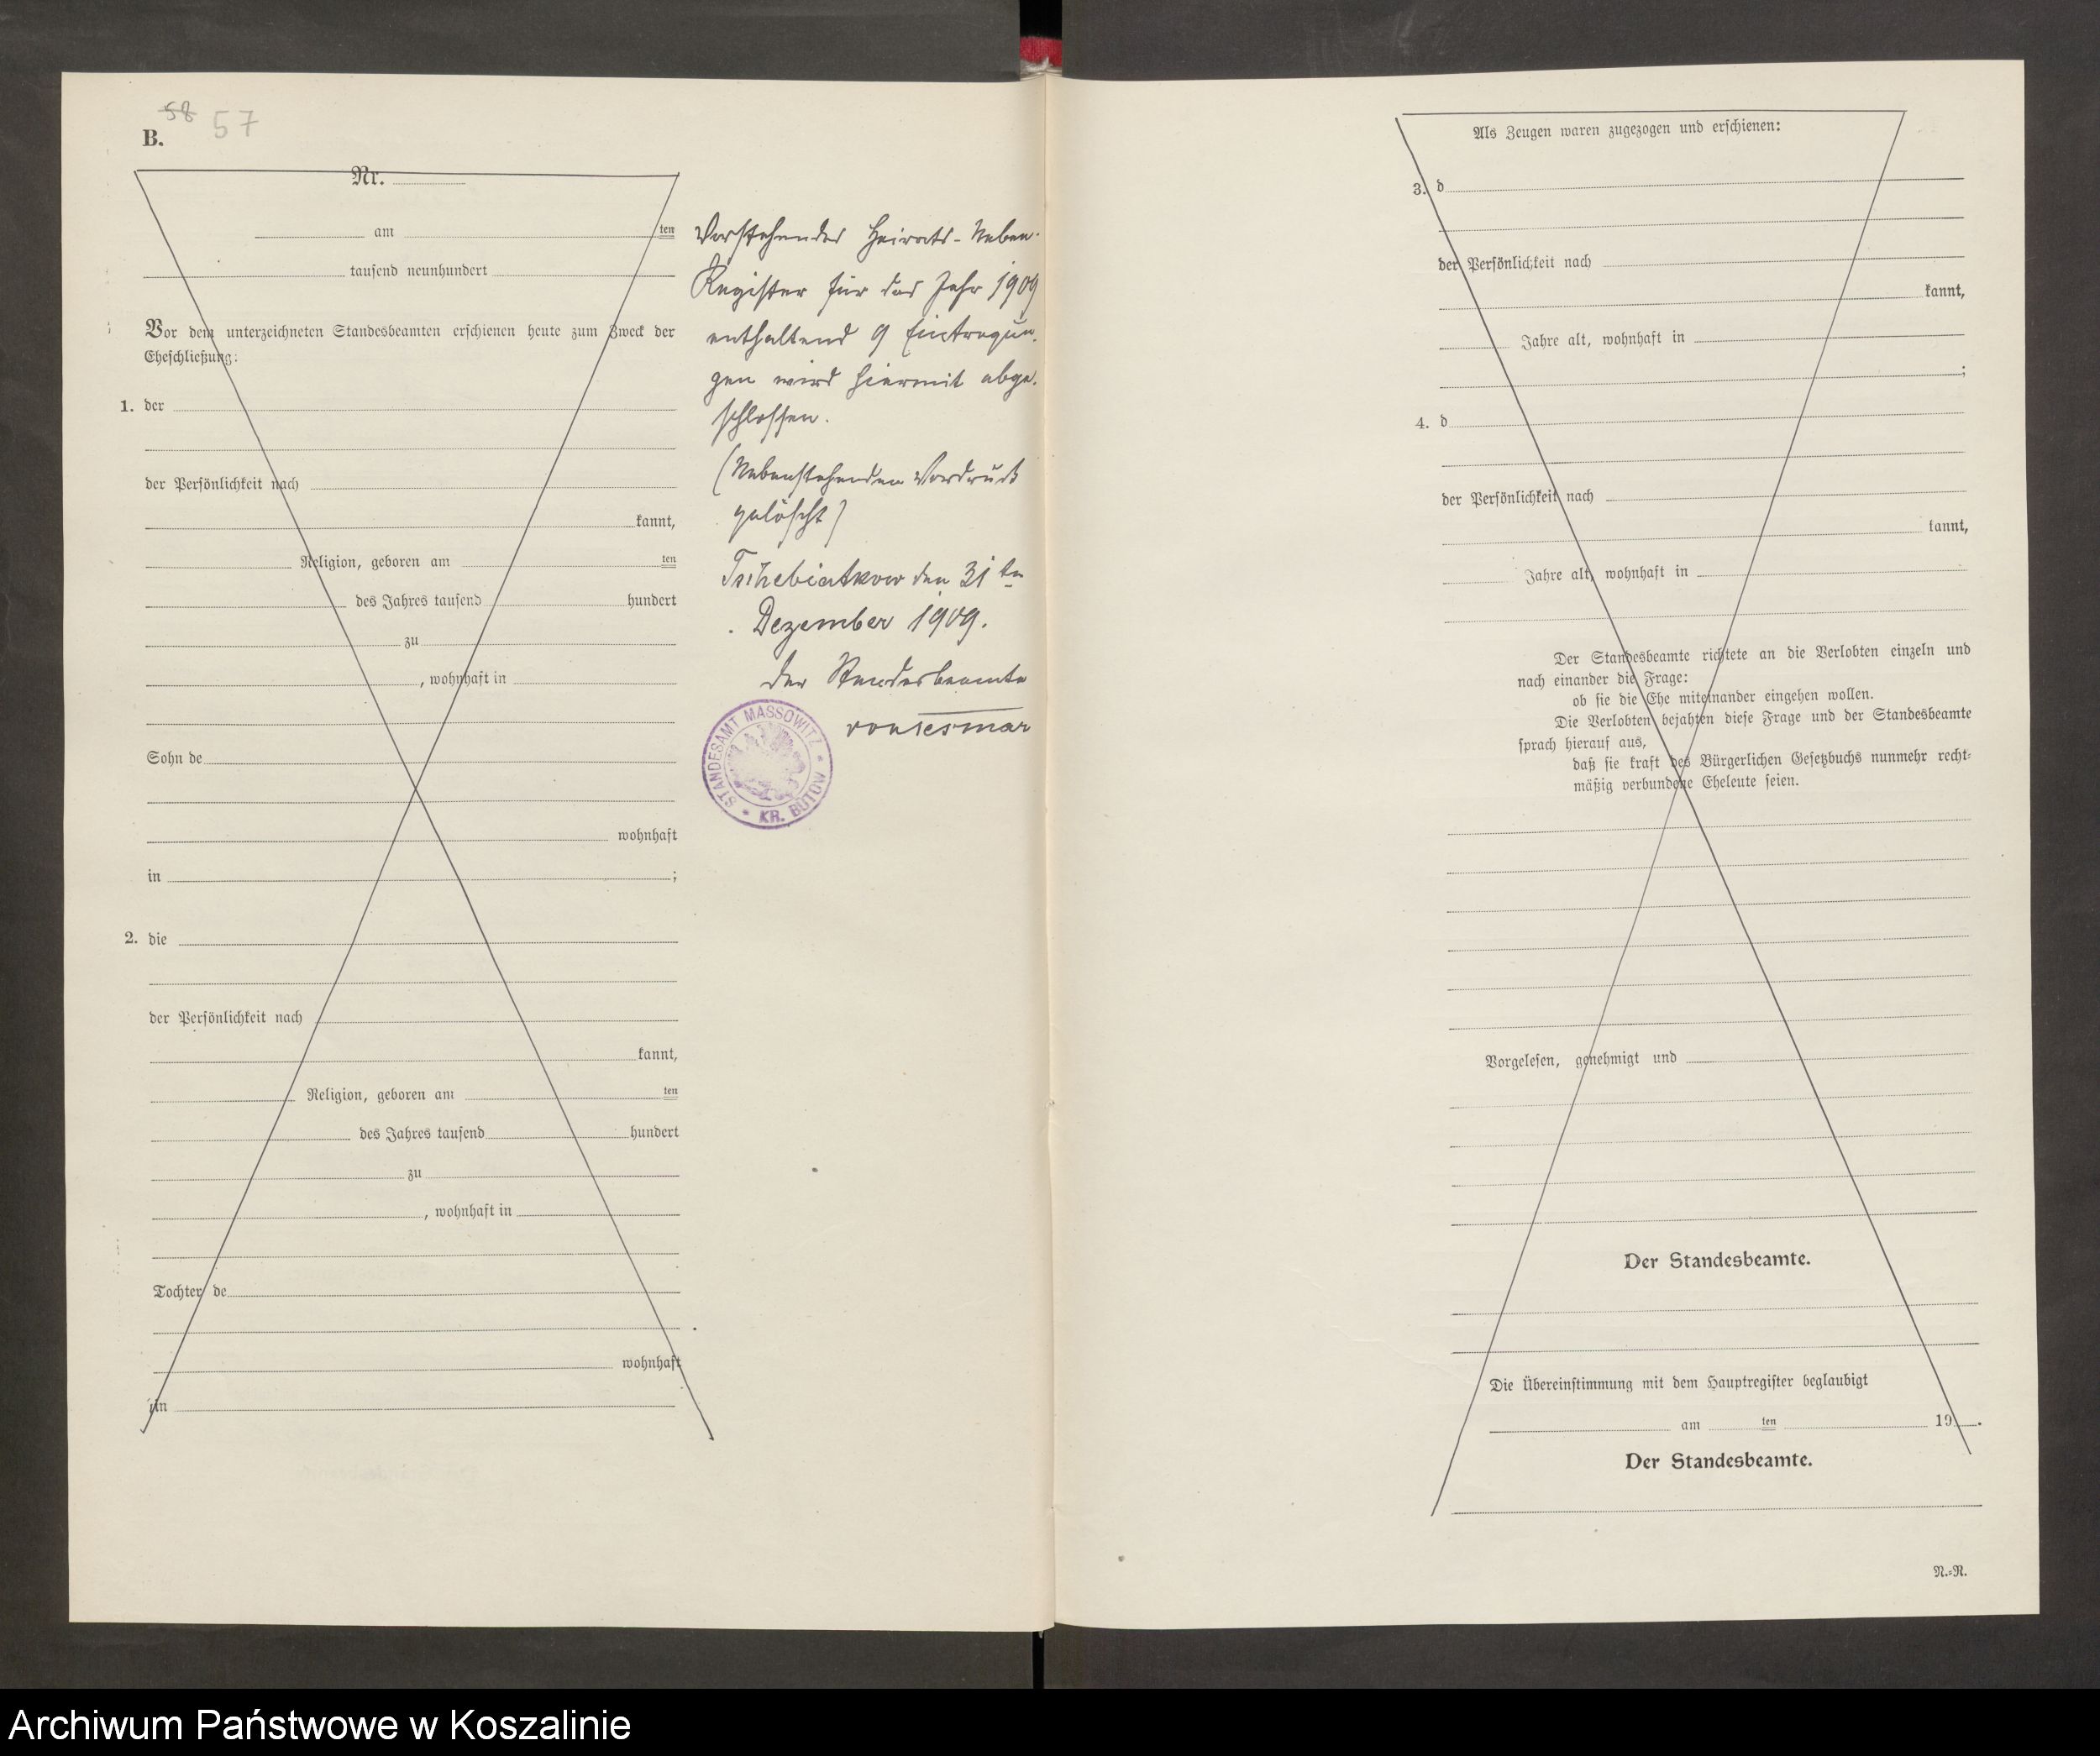 58 57
B.
Nr.
am ten
tausend neunhundert
Vor dem unterzeichneten Standesbeamten erschienen heute zum Zweck der
Eheschließung:
1. der
der Persönlichkeit nach
kannt,
Religion, geboren am ten
des Jahres tausend hundert
zu
, wohnhaft in
Sohn de
wohnhaft
in ;
2. die
der Persönlichkeit nach
kannt,
Religion, geboren am ten
des Jahres tausend hundert
zu
, wohnhaft in
Tochter de
wohnhaft
in
Vorstehendes Heirats-Neben-
Register für das Jahr 1909
enthaltend 9 Eintragun-
gen wird hiermit abge-
schlossen.
(Nebenstehenden Vordruck
gelöscht)
den 31ten
Dezember 1909.
Der Standesbeamte
STANDESAMT MASSOWITZ
* KR. BÜTOW *
Als Zeugen waren zugezogen und erschienen:
3. d
der Persönlichkeit nach
kannt,
Jahre alt, wohnhaft in
;
4. d
der Persönlichkeit nach
kannt,
Jahre alt, wohnhaft in
Der Standesbeamte richtete an die Verlobten einzeln und
nach einander die Frage:
ob sie die Ehe miteinander eingehen wollen.
Die Verlobten bejahten diese Frage und der Standesbeamte
sprach hierauf aus,
daß sie kraft des Bürgerlichen Gesetzbuchs nunmehr recht-
mäßig verbundene Eheleute seien.
Vorgelesen, genehmigt und
Der Standesbeamte.
Die Übereinstimmung mit dem Hauptregister beglaubigt
am ten 19 .
Der Standesbeamte.
N.-R.
Archiwum Państwowe w Koszalinie